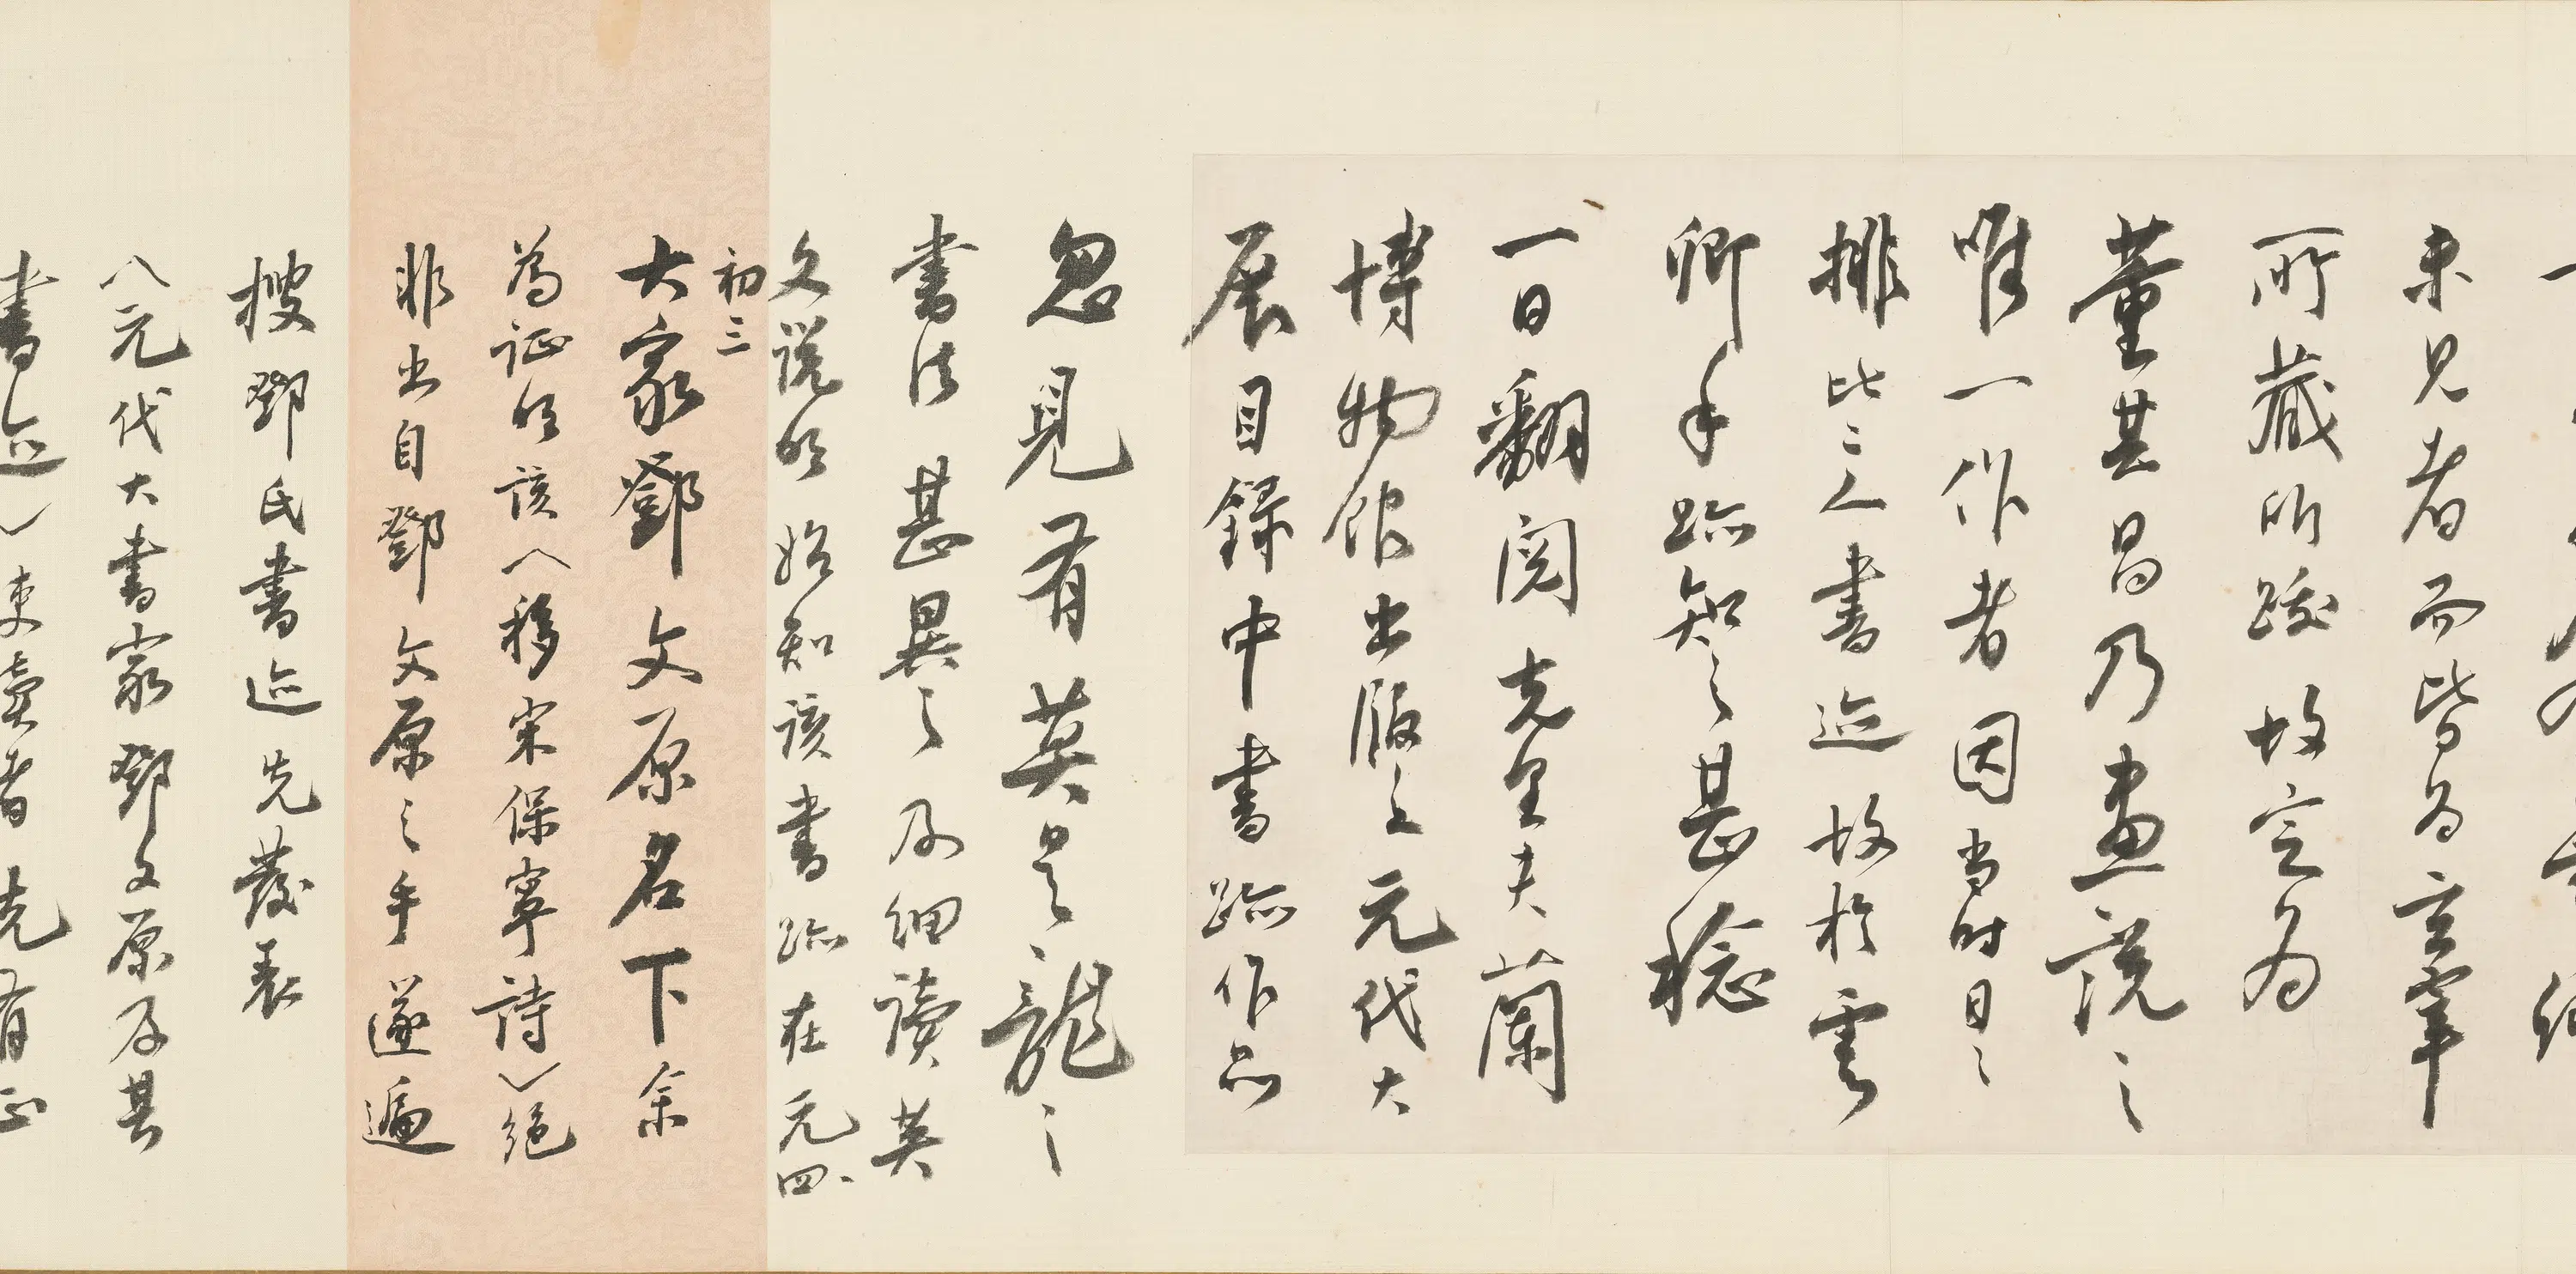 未見者而皆為玄宰
所藏所跋故定為
董其昌乃畫說之
唯一作者因當時日之
排比二人書迹故於雲
卿手跡知之甚稔
一日翻閱克里夫蘭
博物館出版之元代大
展目錄中書跡作品
忽見有莫是龍之
書法甚異之及細讀英
文說明始知該書跡在元四
初三
大家鄧文原名下余
為證明該〈移宋保寧詩〉絕
非出自鄧文原之手遂遍
搜鄧氏書迹先發表
〈元代大書家鄧文原及其
書迹〉